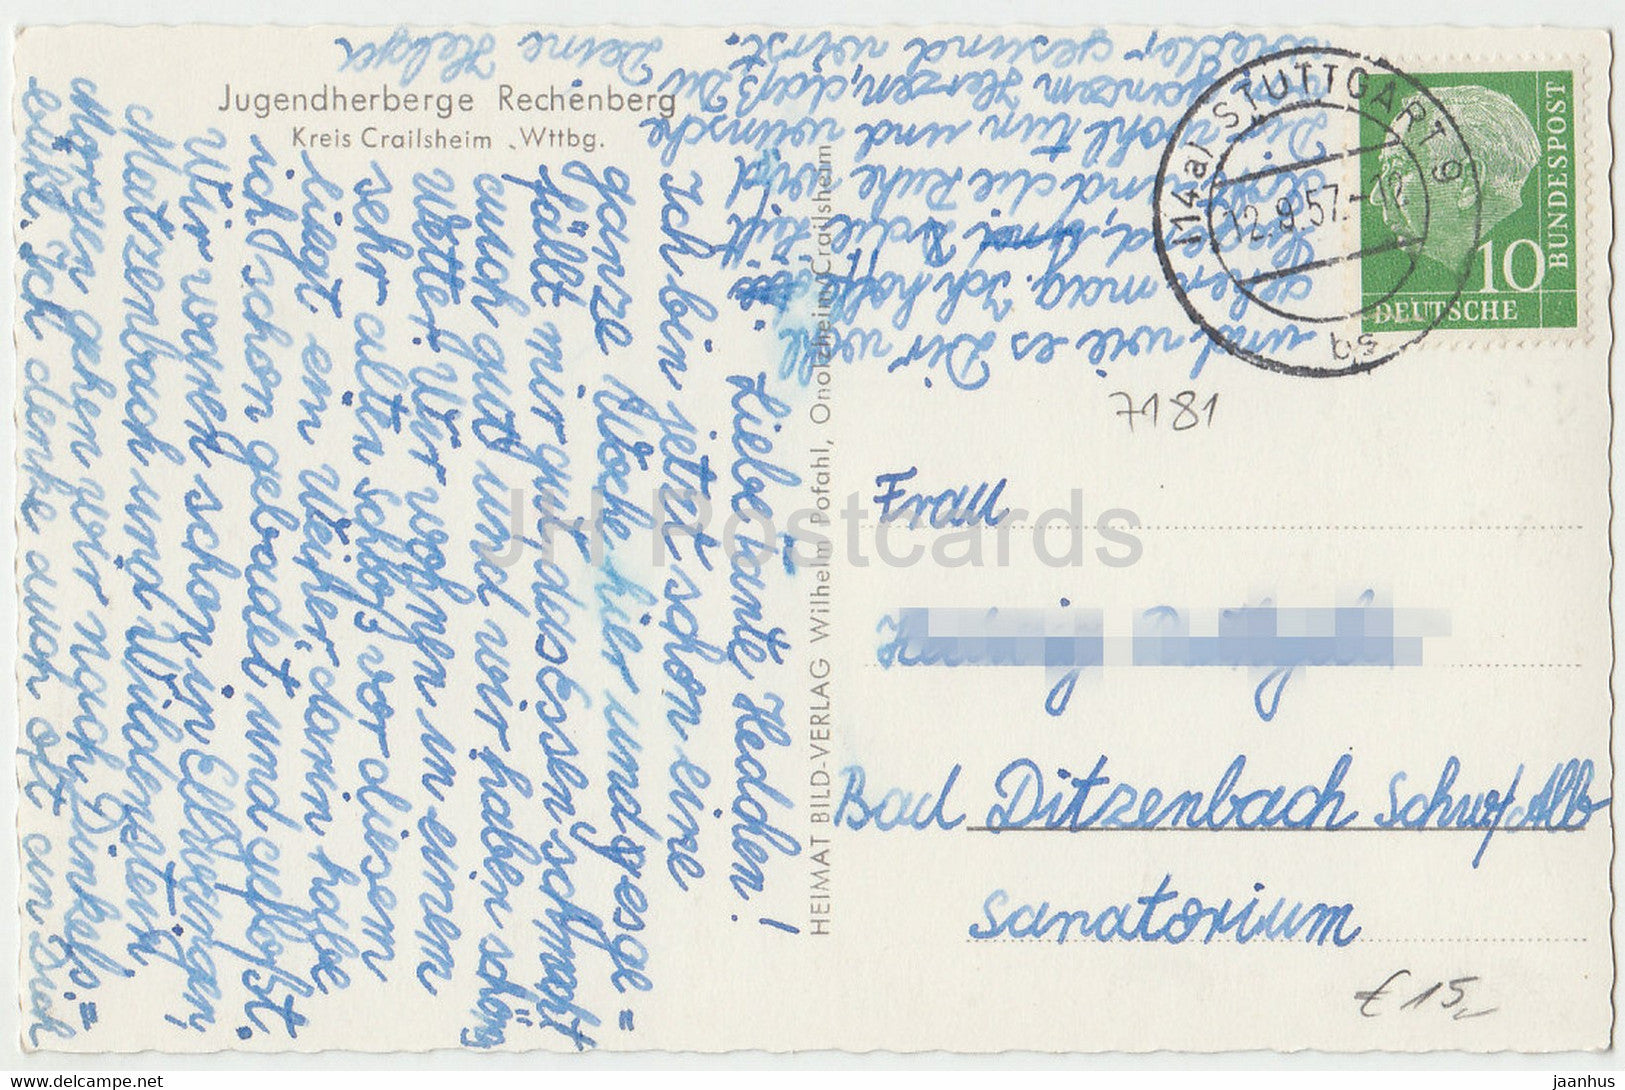 Jugendherberge Rechenberg
Kreis Crailsheim , Wttbg.
HEIMAT BILD-VERLAG Wilhelm Pofahl, Onolzheim-Crailsheim
Liebe Tante Hedden!
Ich bin jetzt schon eine
ganze Woche hier und es ge=
fällt mir gut. das Essen schmeckt
auch gut und wir haben schön
Wetter. Wir wohnen in einem
sehr alten Schloß, vor diesem
liegt ein Weiher, darin habe
ich schon gebadet und geflößt.
Wir waren schon in Ellwangen,
Matzenbach und Wildenstein,
Morgen gehen wir nach Dinkels=
bühl. Ich denke auch oft an Dich
und wie es Dir wohl
gehen mag. Ich hoffe
die Luft
und die Ruhe wird
Dir wohl tun und wünsche
ganzem Herzen, daß Du
wieder gesund wirst.
Deine Helga
(14a) STUTTGART 9
12.9.57.-12
bs
10
DEUTSCHE
BUNDESPOST
7181
Frau
Bad Ditzenbach Schw/Alb
Sanatorium
€ 15,-
JH Postcards
www.delcampe.net
jaanhus